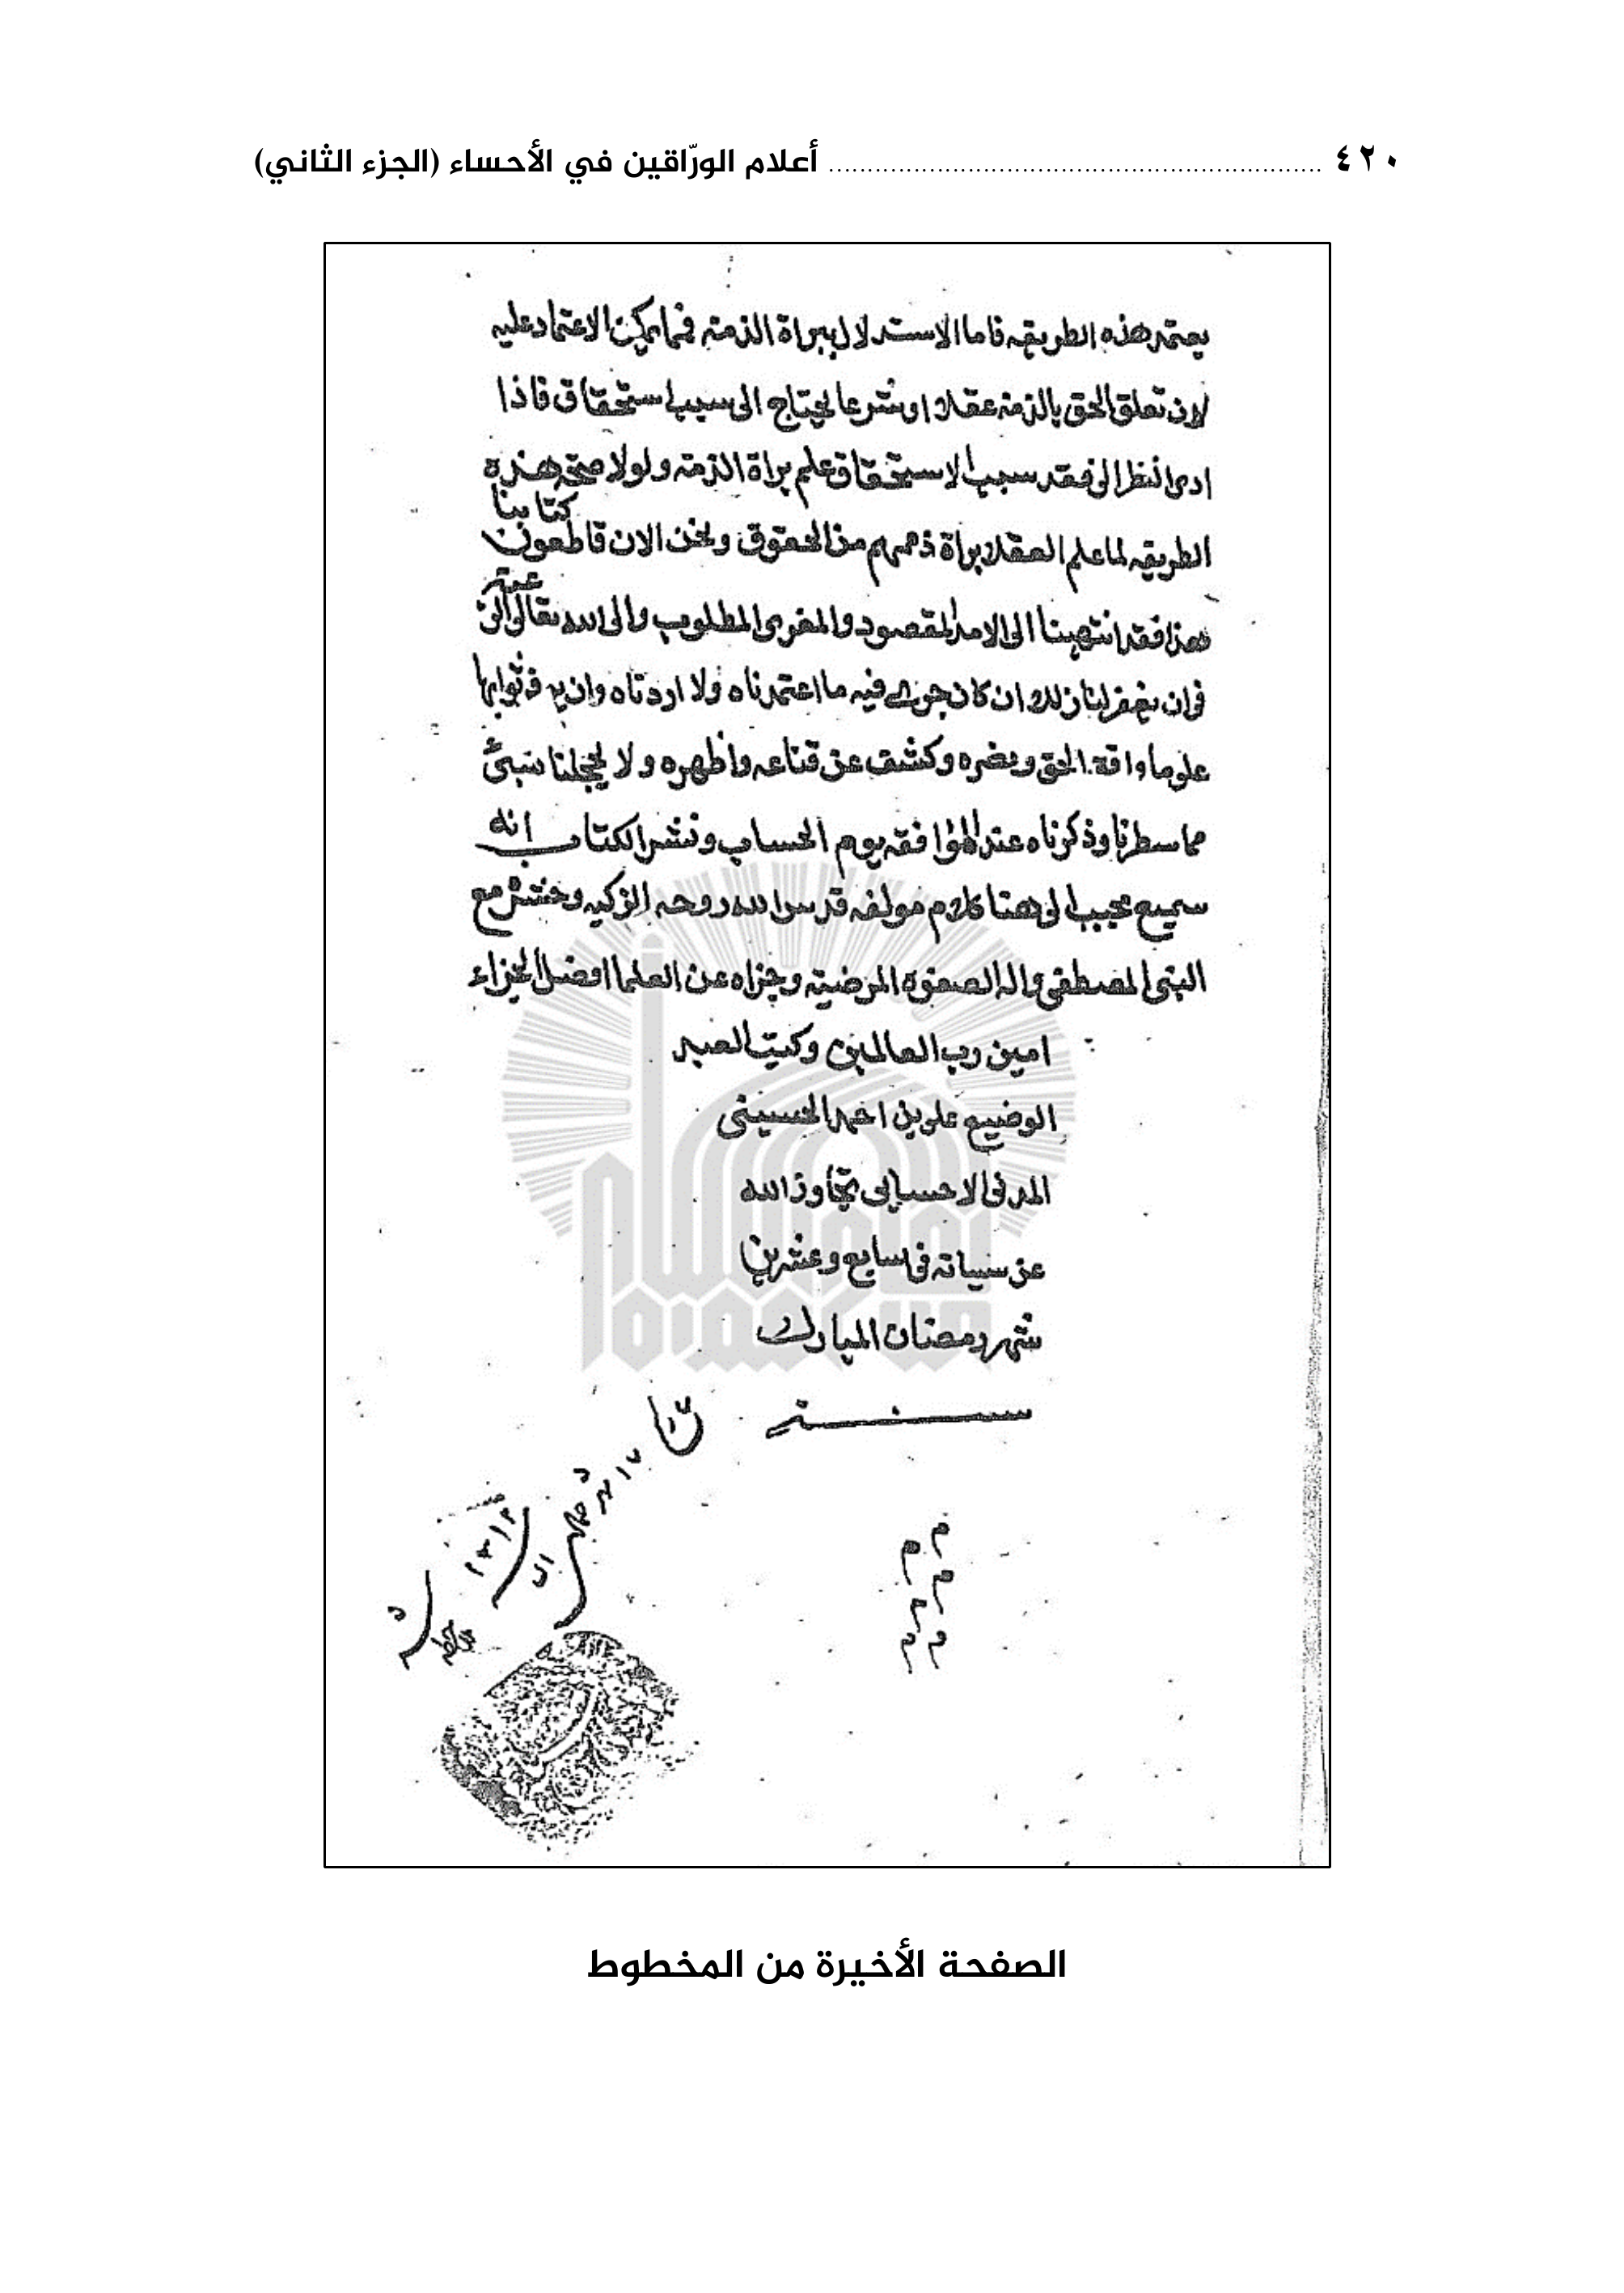 ٤٢٠ أعلام الورّاقين في الأحساء (الجزء الثاني)
يعتمد هذه الطريقه فاما الاستدلال ببراة الذمته فمما يمكن الاعتماد عليه
لان تعلق الحق بالذمه عقلا او شرعا يحتاج الى سبب استحقاق فاذا
ادى النظر الى فقد سبب الاستحقاق علم براة الذمه ولولا صحة هذه
الطريقه لما علم العقلا براة ذممهم من الحقوق ونحن الان قاطعون كتابنا
هذا فقد انتهينا الى الامد المقصود والمغزى المطلوب والى الله تعالى
في ان يغفر لنا زلل ان كان جرى فيه ما اعتمدناه ولا اردناه وان
على ما وافق الحق ونصره وكشف عن قناعه واظهره ولا يخجلنا بشئ
مما سطرنا وذكرناه عند الموافقه يوم الحساب ونشر الكتاب انه
سميع مجيب الى هنا كلام مولفه قدس الله روحه الزكيه وحشره مع
النبى المصطفى واله الصفوه المرضيه وجزاه عن العلما افضل الجزاء
امين رب العالمين وكتب العبد
الوضيع على بن احمد الحسينى
المدنى الاحسايى تجاوز الله
عن سيياته فى سابع وعشرين
شهر رمضان المبارك
سنة
الصفحة الأخيرة من المخطوط